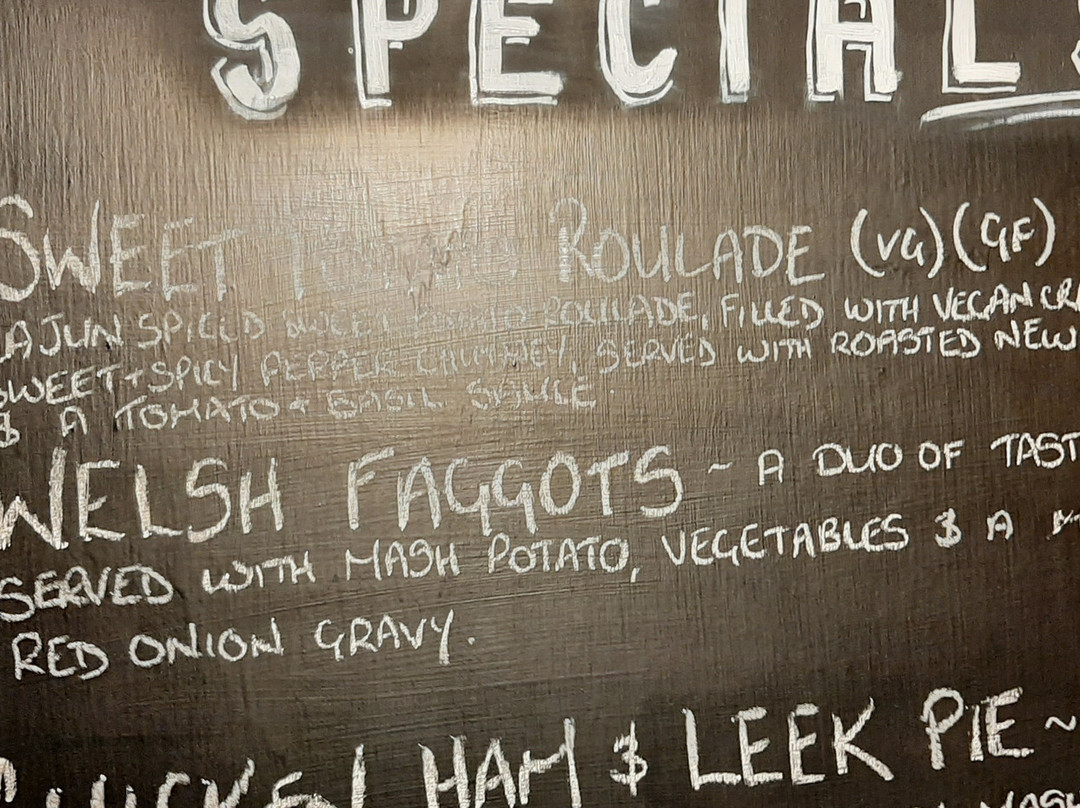 SPECIAL
SWEET POTATO ROULADE (VG) (GF)
CAJUN SPICED SWEET POTATO ROULADE, FILLED WITH VEGAN
SWEET + SPICY PEPPER CHUTNEY, SERVED WITH ROASTED NEW
& A TOMATO + BASIL SAUCE.
WELSH FAGGOTS ~ A DUO OF TAST
SERVED WITH MASH POTATO, VEGETABLES & A
RED ONION GRAVY.
HAM & LEEK PIE ~